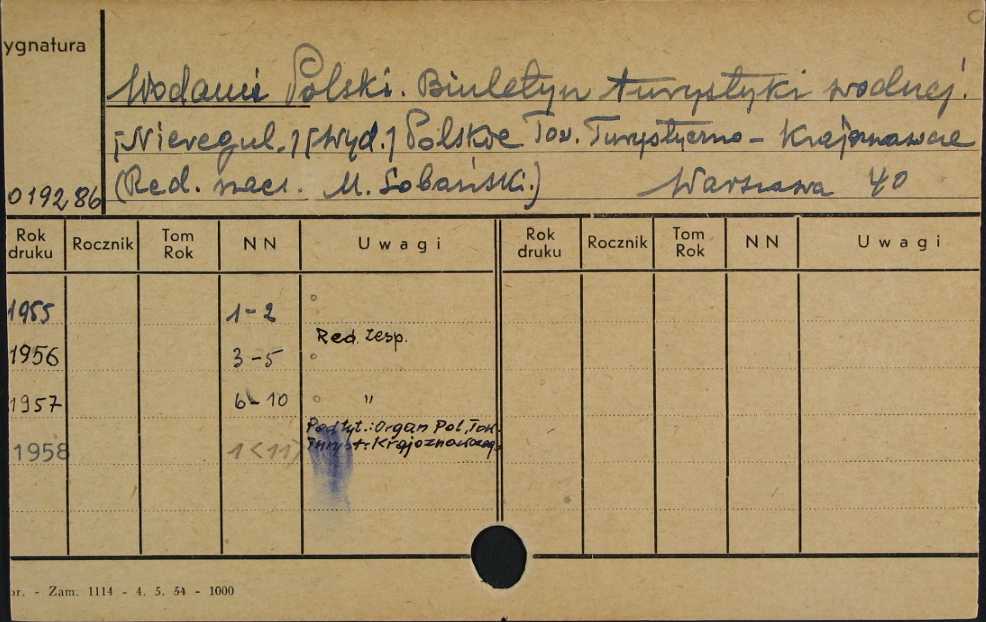 ygnatura
Wodami Polski. Biuletyn turystyki wodnej.
[Nieregul.] [Wyd.] Polskie Tow. Turystyczno-Krajoznawcze
(Red. nacz. M. Lobański.) Warszawa 40
019286
Rok druku Rocznik Tom Rok NN Uwagi Rok druku Rocznik Tom Rok NN Uwagi
1955 1-2
Red. zesp.
1956 3-5
1957 6-10 "
Podtyt.: Organ Pol. Tow.
Turyst. Krajoznawczego
1958 1<11>
or. - Zam. 1114 - 4. 5. 54 - 1000